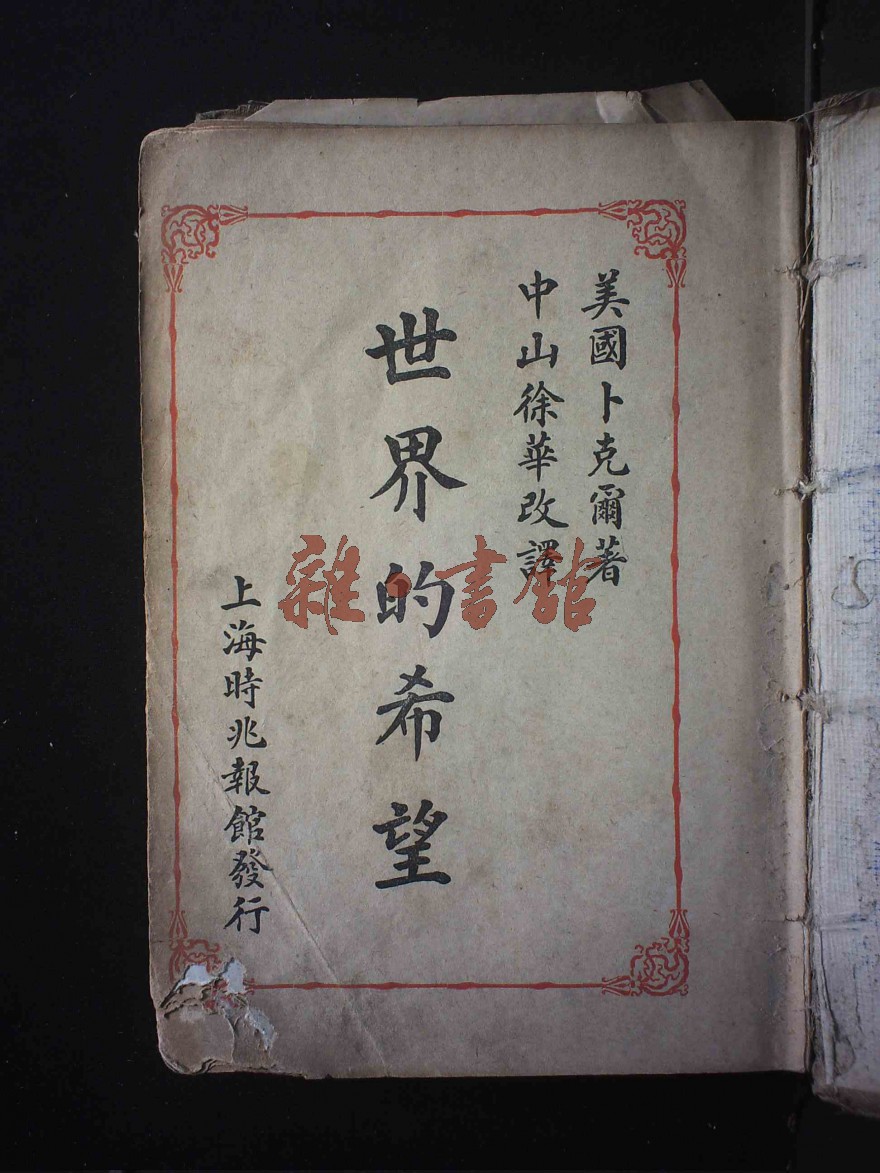 美國卜克爾著
中山徐華改譯
世界的希望
上海時兆報館發行
雜書館